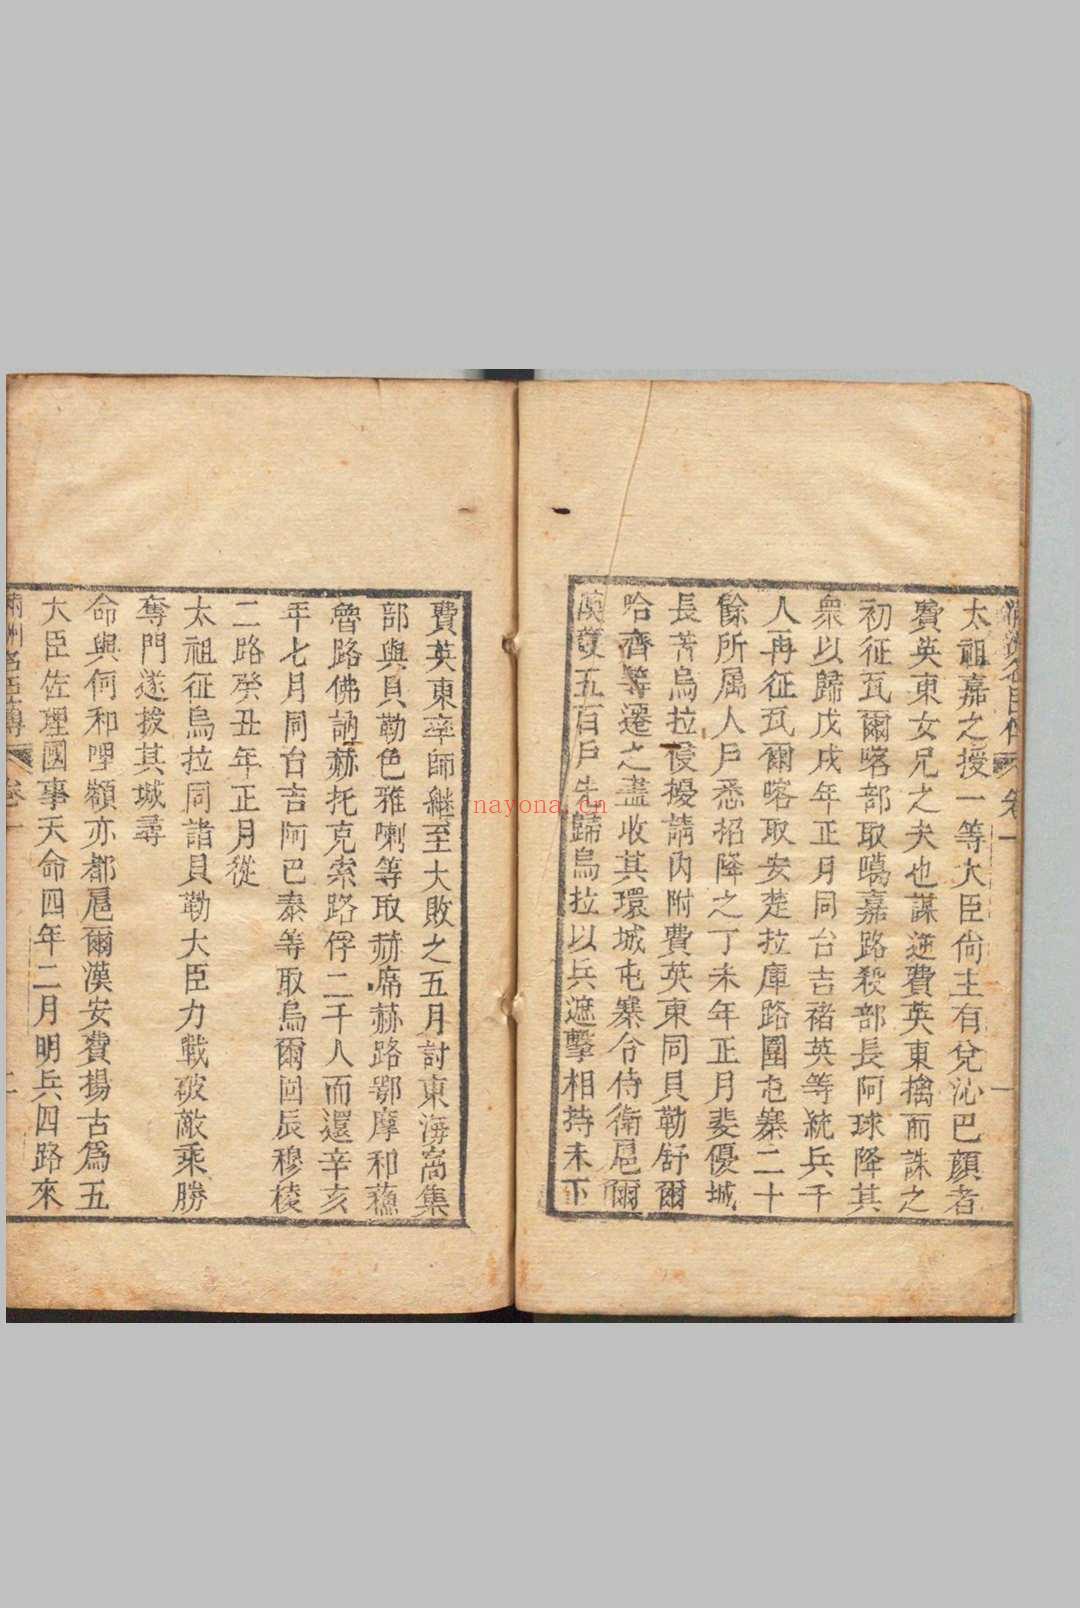 太祖嘉之授一等大臣尙主有兌沁巴顏者
費英東女兄之夫也謀逆費英東擒而誅之
初征瓦爾喀部取噶嘉路殺部長阿球降其
衆以歸戊戌年正月同台吉褚英等統兵千
人再征瓦爾喀取安楚拉庫路圍屯寨二十
餘所属人戶悉招降之丁未年正月斐優城
長苦烏拉侵擾請內附費英東同貝勒舒爾
哈齊等遷之盡收其環城屯寨令侍衛扈爾
漢護五百戶先歸烏拉以兵遮擊相持未下
費英東率師繼至大敗之五月討東海窩集
部與貝勒色雅喇等取赫席赫路鄂摩和蘓
魯路佛訥赫托克索路俘二千人而還辛亥
年七月同台吉阿巴泰等取烏爾回辰穆稜
二路癸丑年正月從
太祖征烏拉同諸貝勒大臣力戰破敵乘勝
奪門遂拔其城尋
命與何和哩額亦都扈爾漢安費揚古爲五
大臣佐理國事天命四年二月明兵四路來
滿洲名臣傳 卷一 二
nayona.cn